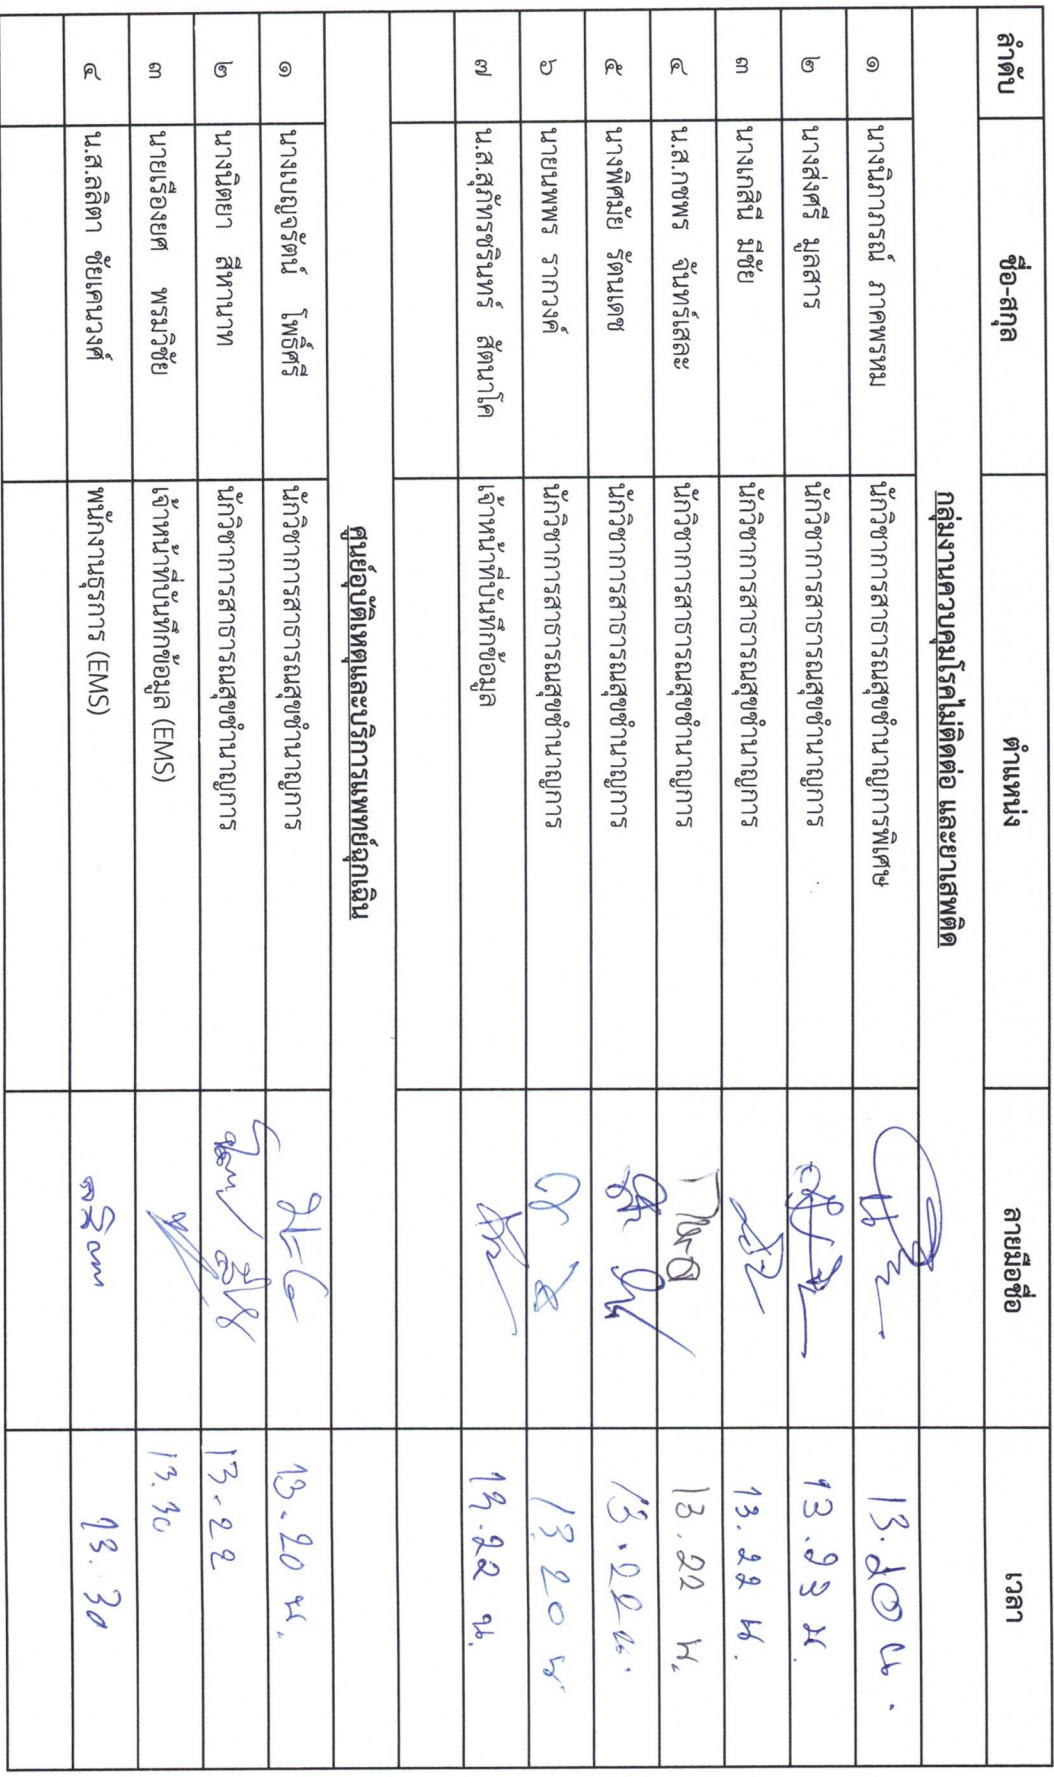 ลำดับ ชื่อ-สกุล ตำแหน่ง ลายมือชื่อ เวลา
กลุ่มงานควบคุมโรคไม่ติดต่อ และยาเสพติด
๑ นางนิภาภรณ์ ภาคพรหม นักวิชาการสาธารณสุขชำนาญการพิเศษ 13.20 น.
๒ นางส่งศรี มูลสาร นักวิชาการสาธารณสุขชำนาญการ น.
๓ นางเกสินี มีชัย นักวิชาการสาธารณสุขชำนาญการ 13.22 น.
๔ น.ส.กชพร จันทร์เสละ นักวิชาการสาธารณสุขชำนาญการ 13.22 น.
๕ นางพิศมัย รัตนเดช นักวิชาการสาธารณสุขชำนาญการ 13.22 น.
๖ นายนพพร รากวงค์ นักวิชาการสาธารณสุขชำนาญการ 13 20 น
๗ น.ส.สุภัทรชรินทร์ สัตนาโค เจ้าหน้าที่บันทึกข้อมูล 13.22 น.
ศูนย์อุบัติเหตุและบริการแพทย์ฉุกเฉิน
๑ นางเบญจรัตน์ โพธิ์ศรี นักวิชาการสาธารณสุขชำนาญการ 13.20 น.
๒ นางนิตยา สีหานาท นักวิชาการสาธารณสุขชำนาญการ 13.22
๓ นายเรืองยศ พรมวิชัย เจ้าหน้าที่บันทึกข้อมูล (EMS) 13.30
๔ น.ส.ลลิตา ชัยเคนวงศ์ พนักงานธุรการ (EMS) ลลิตา 13.30